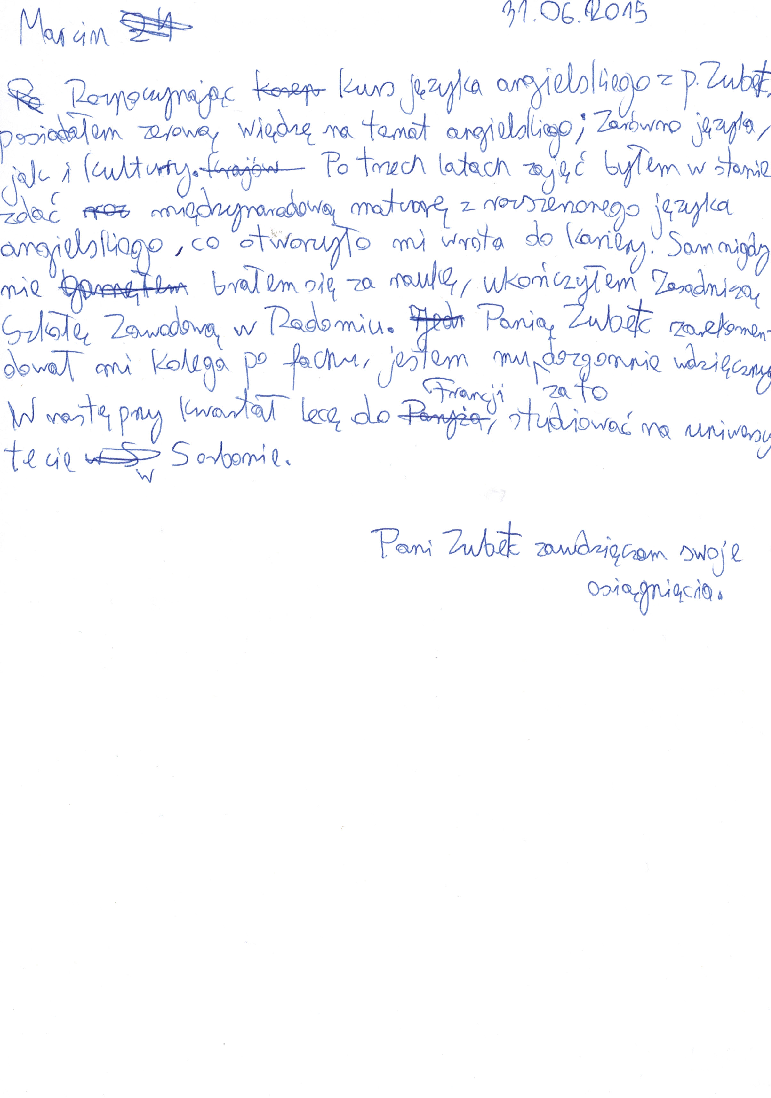 Marcin 24 31.06.2015
Ro Rozpoczynając korep kurs języka angielskiego z p. Zubek,
posiadałem zerową więdzę na temat angielskiego; Zarówno języka,
jak i kultury. krajów Po trzech latach zajęć byłem w stanie
zdać oraz międzynarodową maturę z rozszerzonego języka
angielskiego, co otworzyło mi wrota do kariery. Sam nigdy
nie garnąłem brałem się za naukę, ukończyłem Zasadniczą
Szkołę Zawodową w Radomiu. Panią Zubek zarekomen-
dował mi kolega po fachu, jestem mu dozgonnie wdzięczny
Francji za to
W następny kwartał lecę do Paryża, studiować na uniwersy
tecie w S Sorbonie.
w
Pani Zubek zawdzięczam swoje
osiągnięcia.